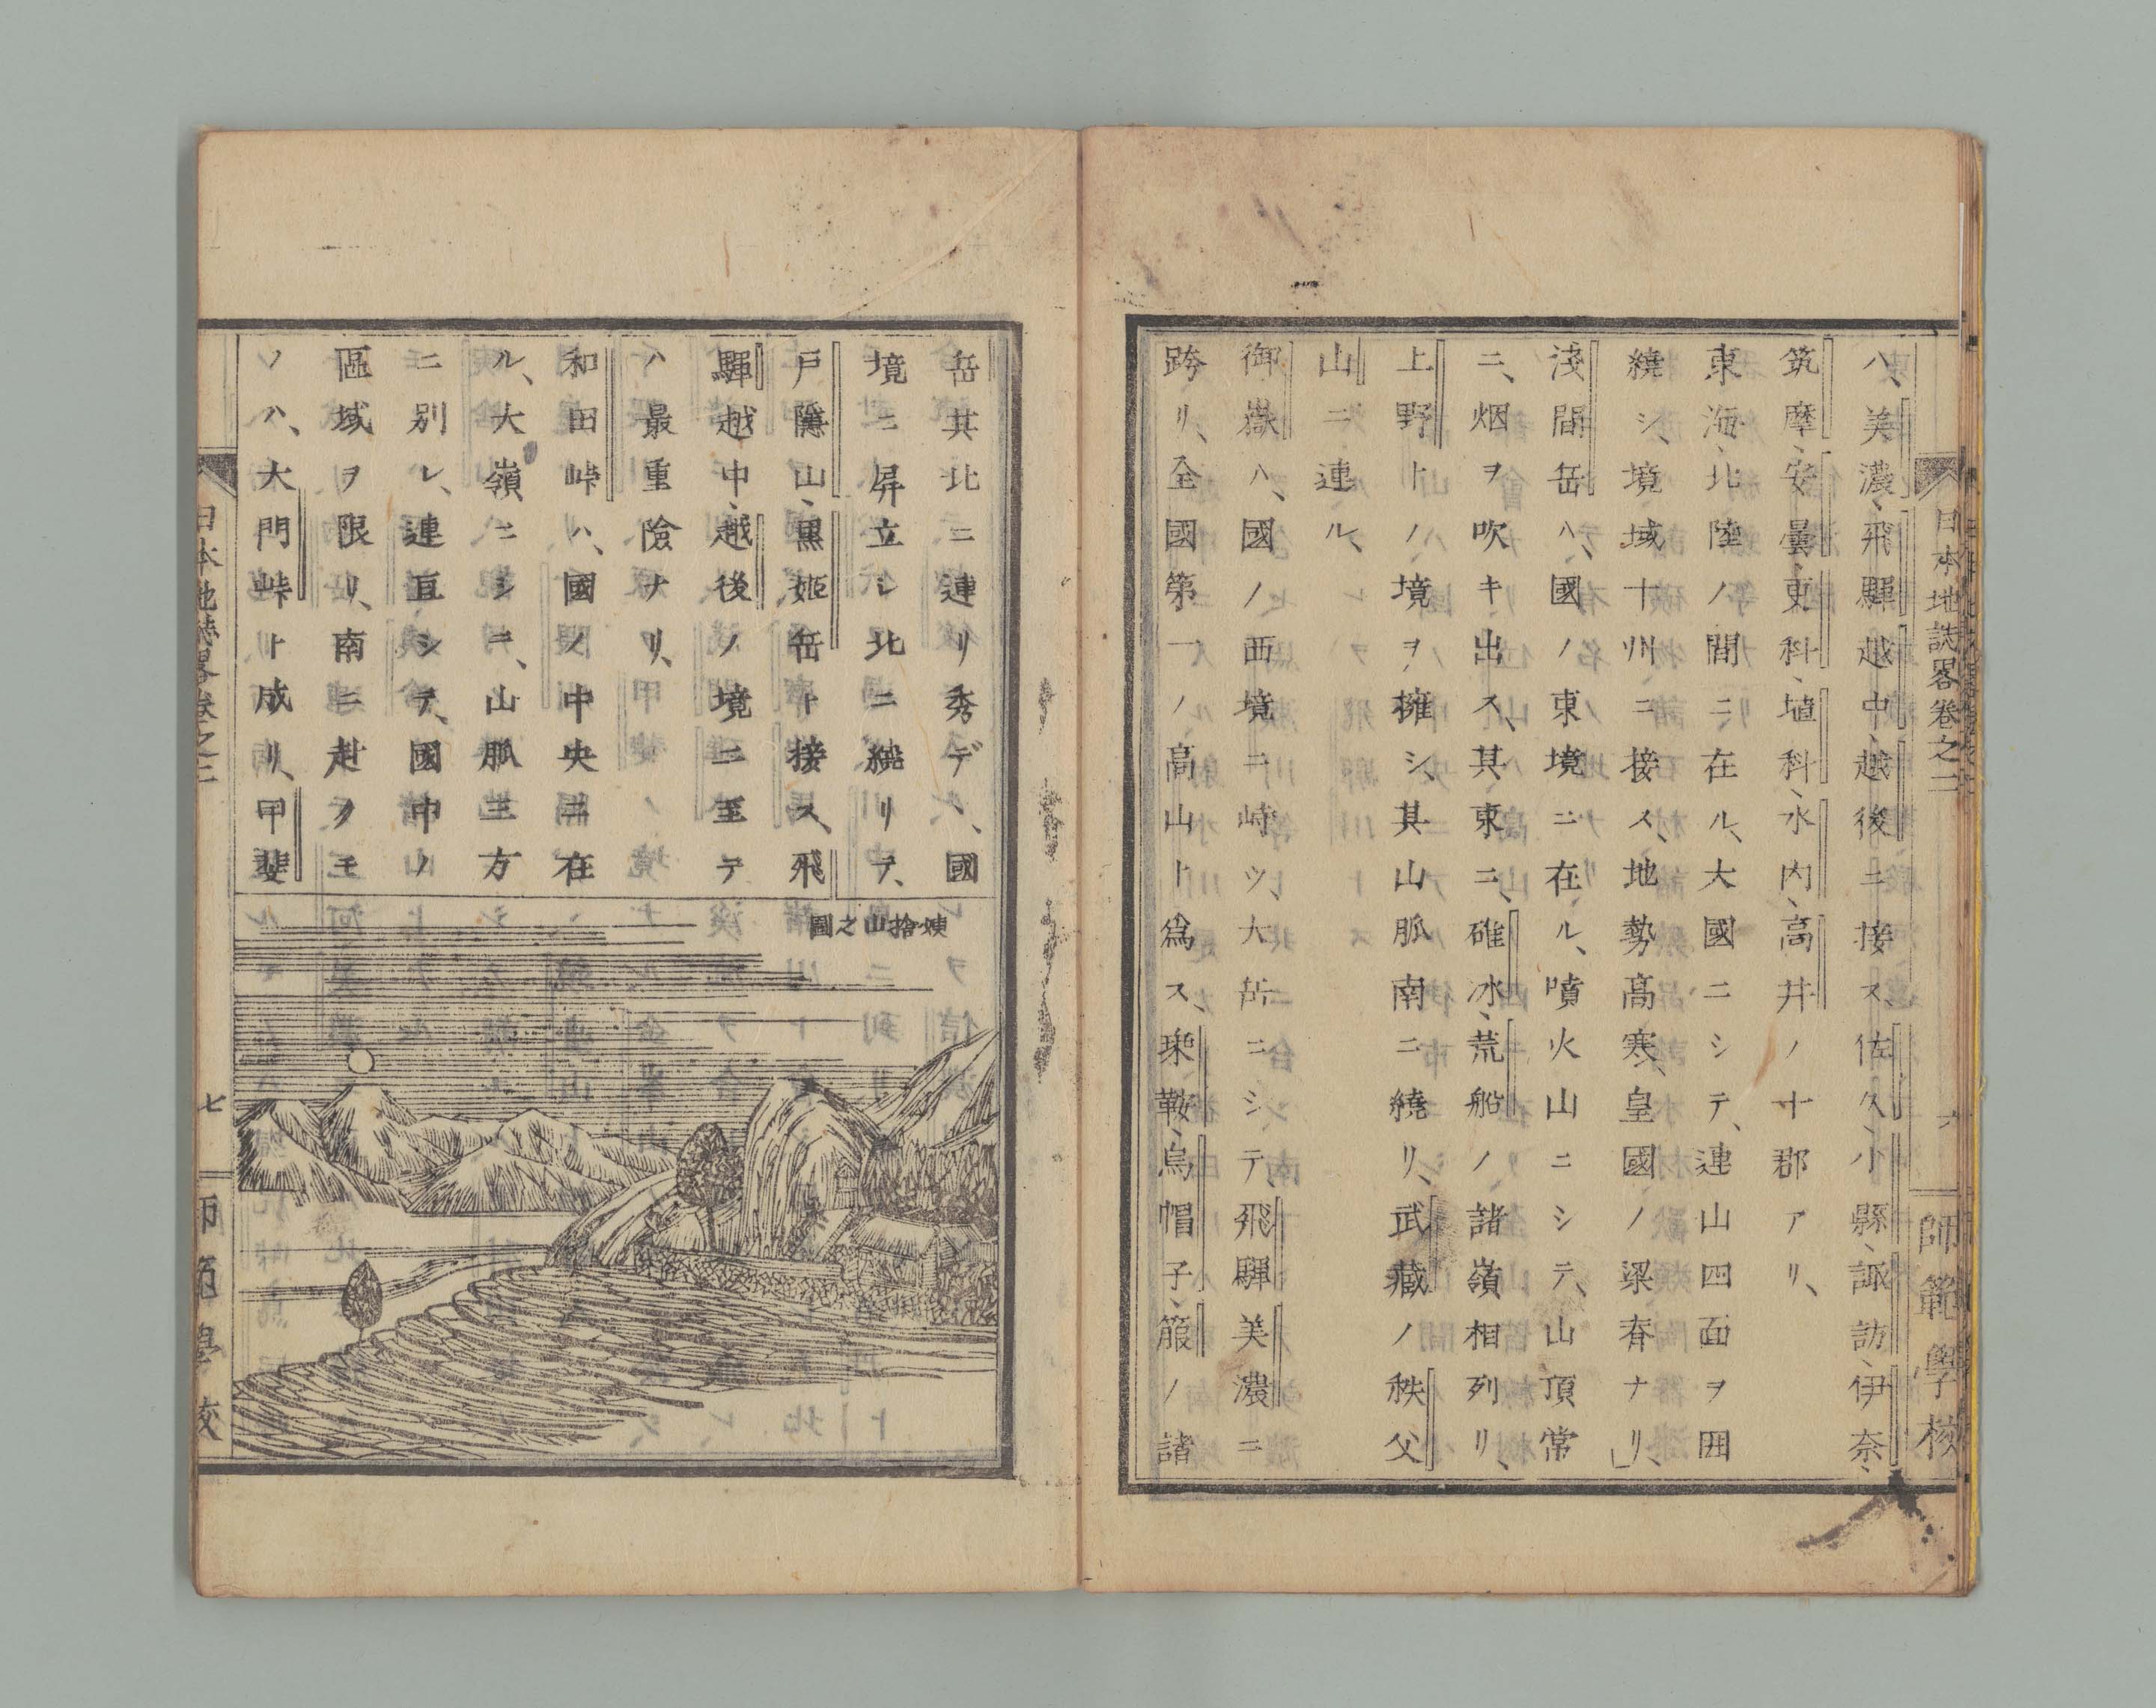 日本地誌畧卷之二
六
師範學校
ハ、美濃、飛驒、越中、越後ニ接ス、佐久、小縣、諏訪、伊奈、
筑摩、安曇、更科、埴科、水内、高井ノ十郡アリ、
東海、北陸ノ間ニ在ル、大國ニシテ、連山四面ヲ囲
繞シ、境域十州ニ接ス、地勢高寒、皇國ノ梁脊ナリ、
淺間岳ハ、國ノ東境ニ在ル、噴火山ニシテ、山頂常
ニ、烟ヲ吹キ出ス、其東ニ、碓氷、荒船ノ諸嶺相列リ、
上野トノ境ヲ擁シ、其山脈南ニ繞リ、武藏ノ秩父
山ニ連ル、
御嶽ハ、國ノ西境ニ峙ツ、大岳ニシテ飛驒美濃ニ
跨リ、全國第一ノ高山ト爲ス、乘鞍、烏帽子、籠ノ諸
岳其北ニ連リ秀デ、國
境ニ屏立シ北ニ繞リテ、
戸隱山、黒姫岳ト接ス、飛
驒越中、越後ノ境ニ至テ
ハ最重險ナリ、
和田峠ハ、國ノ中央ニ在
ル、大嶺ニシニ、山脈三方
ニ別レ、連亘シテ、國中ノ
區域ヲ限リ、南ニ赴クモ
ノハ、大門峠ト成リ、甲斐
姨捨山之圖
日本地誌畧卷之二
七
師範學校